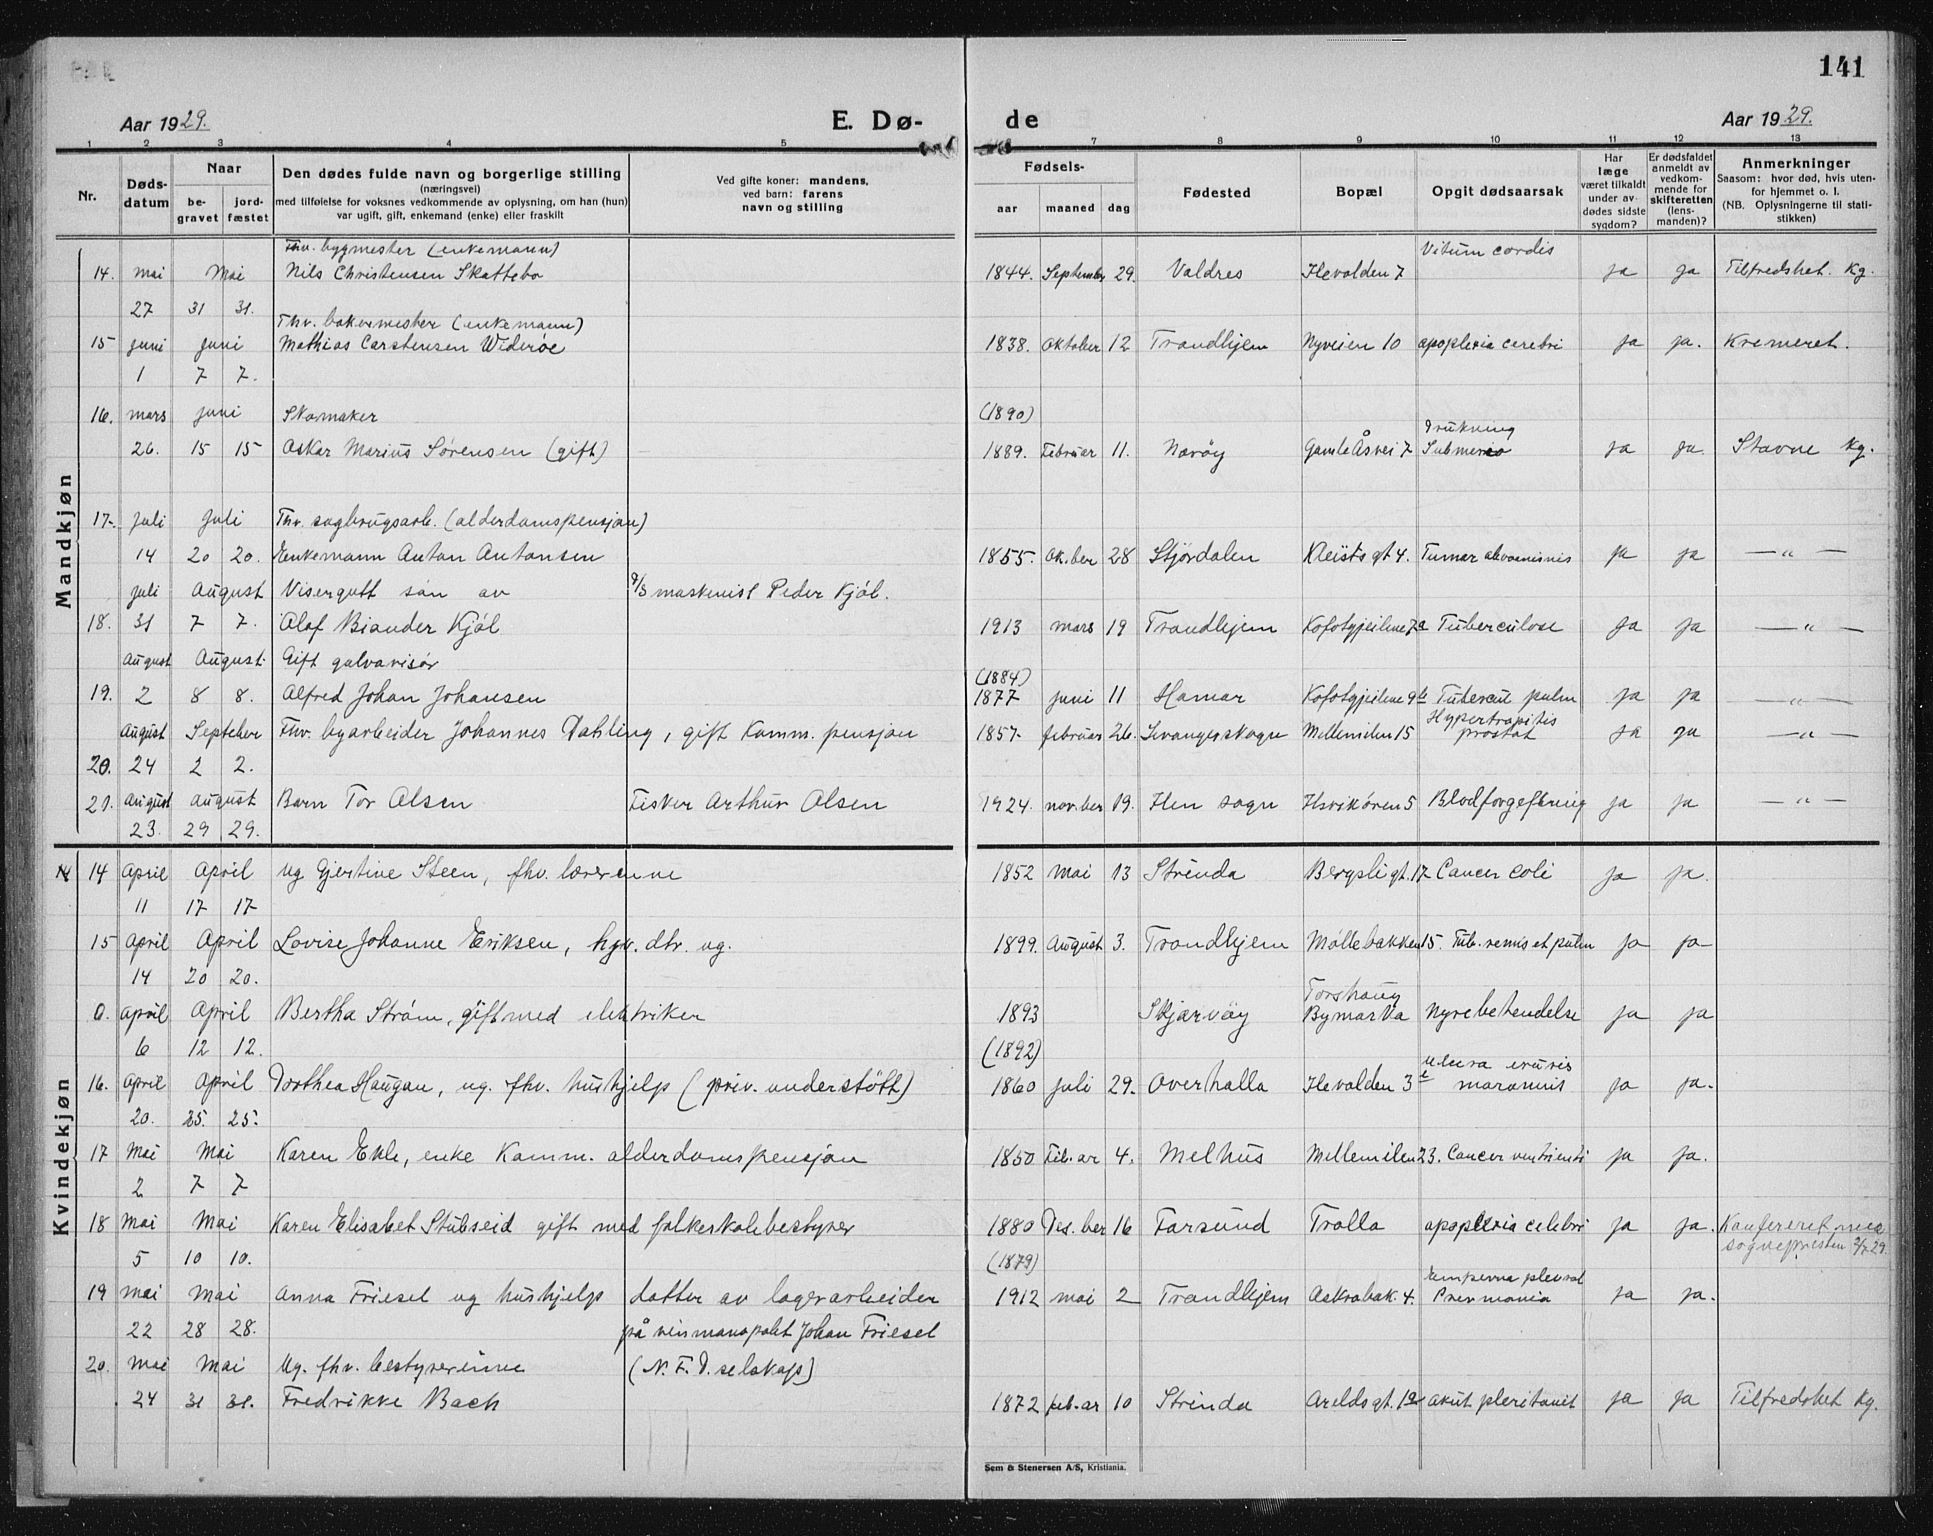 141
Aar 1929. E. Dø-
de Aar 1929.
1 2 3 4 5
7 8 9 10 11 12 13
Nr. Døds-datum Naar be-gravet jord-fæstet Den dødes fulde navn og borgerlige stilling (næringsvei) med tilføielse for voksnes vedkommende av oplysning, om han (hun) var ugift, gift, enkemand (enke) eller fraskilt Ved gifte koner: mandens, ved barn: farens navn og stilling
Fødsels- aar maaned dag Fødested Bopæl Opgit dødsaarsak Har læge været tilkaldt under av-dødes sidste sygdom? Er dødsfaldet anmeldt av vedkom-mende for skifteretten (lens-manden)? Anmerkninger Saasom: hvor død, hvis uten-for hjemmet o. l. (NB. Oplysningerne til stati-stikken)
Mandkjøn
Fhv. bygmester (enkemann) Vitium cordis
14. mai Mai Nils Christensen Skattebo 1844. September 29. Valdres Ilevolden 7 ja ja Tilfredshet. Kg.
27 31 31.
Fhv. bakermester (enkemann)
15 juni juni Mathias Carstensen Widerøe 1838. Oktober 12 Trondhjem Nyveien 10 apoplexia cerebri ja ja. Kremeret.
1 7 7.
16. mars juni Skomaker (1890)
Drukning
26. 15 15 Oskar Marius Sørensen (gift) 1889. Februar 11. Nærøy Gamle Åsvei 7 Submersio ja ja. Stavne Kg.
17. juli juli Fhv. sagbrugsarb. (alderdomspensjon)
14 20 20. Enkemann Anton Antonsen 1855. Ok.ber 28 Stjørdalen Kleists gt 4. Tumor ja ja — „ —
juli August Visergutt søn av g/s maskinist Peder Kjøl.
18. 31 7 7. Olaf Biander Kjøl 1913 mars 19 Trondhjem Tuberculose ja ja — „ —
August August. Gift galvanisør (1884)
19. 2 8 8. Alfred Johan Johansen 1877 juni 11 Hamar Tubercu pulm ja ja — „ —
August September Fhv. byarbeider Johannes Dahling, gift Komm. pensjon 1857. februar 26. Levangerskogn Mellemilen 15 Hypertropitis prostat ja ja — „ —
20. 24 2 2.
21. August August Barn Tor Olsen Fisker Arthur Olsen 1924. nov.ber 19. Ilen sogn Ilsvikøren 5 Blodforgeftning ja ja — „ —
23. 29 29.
Kvindekjøn
14 April April ug Gjertine Steen, fhv. lærerinne 1852 mai 13 Strinda Bergsli gt. 17 Cancer coli ja ja.
11 17 17
15 April April Lovise Johanne Eriksen, hgv. dtr. ug. 1899. August 3. Trondhjem Møllebakken 15. Tub. renis et pulm ja ja
14 20 20.
Torshaug
0. April April Bertha Strøm, gift med elektriker 1893 Skjærvøy Bymarka Nyrebetendelse ja ja
6 12 12. (1892)
Ulcera cruris
16. April April Dorthea Haugan, ug. fhv. hushjelp (priv. understøtt) 1860 juli 29. Overhalla Ilevolden 3 marasmis ja ja.
20. 25. 25.
17 Mai Mai Karen Evle, enke Komm. alderdomspensjon 1850 Feb.ar 4. Melhus Mellemilen 23. Cancer ventriculi ja ja.
2 7 7
18 Mai Mai Karen Elisabet Stubseid gift med folkeskolebestyrer 1880 Des.ber 16 Farsund Trolla apoplexia celebri ja ja. Konfereret med
5 10 10. (1879) sognepresten 2/7 29.
Empyema pleural
19 mai mai Anna Friesel ug hushjelp datter av lagerarbeider 1912 mai 2 Trondhjem Askrabak. 4. Pnevmonia ja ja.
22 28 28. på vinmonopolet Johan Friesel
20. mai mai Ug. fhv. bestyrerinne (N. F. D. selskap)
24 31 31. Fredrikke Bach 1872 feb.ar 10 Strinda akut peritonit ja ja Tilfredshet Kg.
Sem & Stenersen A/S, Kristiania.